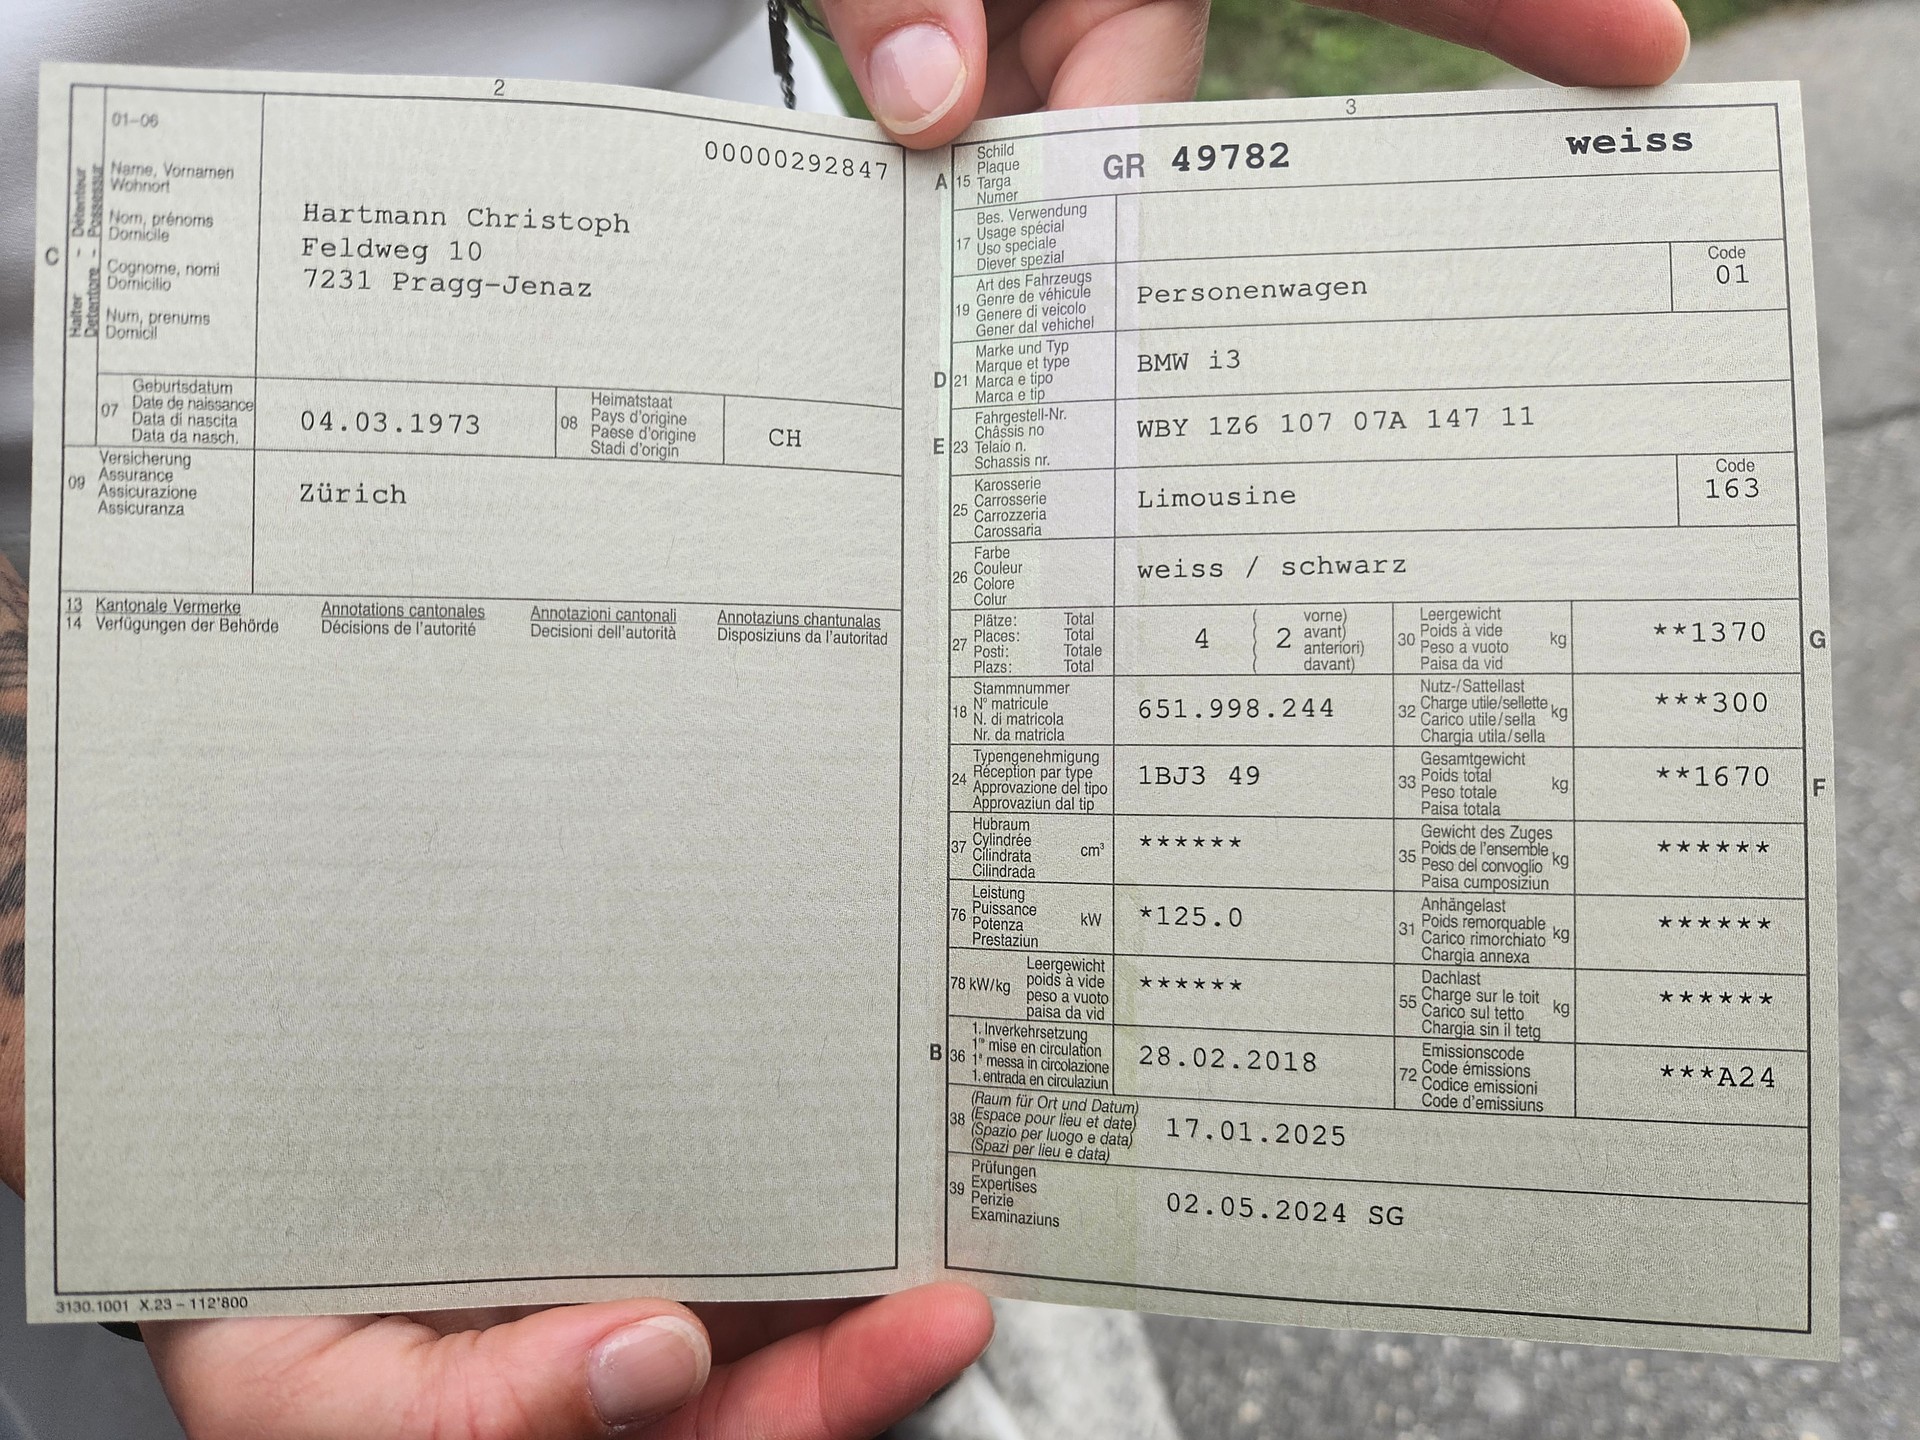 2
01-06
00000292847
C
Halter - Détenteur
Detentore - Possessur
Name, Vornamen
Wohnort
Nom, prénoms
Domicile
Cognome, nomi
Domicilio
Num, prenums
Domicil
Hartmann Christoph
Feldweg 10
7231 Pragg-Jenaz
07
Geburtsdatum
Date de naissance
Data di nascita
Data da nasch.
04.03.1973
08
Heimatstaat
Pays d'origine
Paese d'origine
Stadi d'origin
CH
09
Versicherung
Assurance
Assicurazione
Assicuranza
Zürich
13 Kantonale Vermerke Annotations cantonales Annotazioni cantonali Annotaziuns chantunalas
14 Verfügungen der Behörde Décisions de l'autorité Decisioni dell'autorità Disposiziuns da l'autoritad
3130.1001 X.23 – 112'800
3
A 15
Schild
Plaque
Targa
Numer
GR 49782 weiss
17
Bes. Verwendung
Usage spécial
Uso speciale
Diever spezial
19
Art des Fahrzeugs
Genre de véhicule
Genere di veicolo
Gener dal vehichel
Personenwagen
Code
01
D 21
Marke und Typ
Marque et type
Marca e tipo
Marca e tip
BMW i3
E 23
Fahrgestell-Nr.
Châssis no
Telaio n.
Schassis nr.
WBY 1Z6 107 07A 147 11
25
Karosserie
Carrosserie
Carrozzeria
Carossaria
Limousine
Code
163
26
Farbe
Couleur
Colore
Colur
weiss / schwarz
27
Plätze: Total
Places: Total
Posti: Totale
Plazs: Total
4 ( 2
vorne)
avant)
anteriori)
davant)
30
Leergewicht
Poids à vide
Peso a vuoto
Paisa da vid
kg
**1370
G
18
Stammnummer
N° matricule
N. di matricola
Nr. da matricla
651.998.244
32
Nutz-/Sattellast
Charge utile/sellette
Carico utile/sella
Chargia utila/sella
kg
***300
24
Typengenehmigung
Réception par type
Approvazione del tipo
Approvaziun dal tip
1BJ3 49
33
Gesamtgewicht
Poids total
Peso totale
Paisa totala
kg
**1670
F
37
Hubraum
Cylindrée
Cilindrata
Cilindrada
cm³
******
35
Gewicht des Zuges
Poids de l'ensemble
Peso del convoglio
Paisa cumposiziun
kg
******
76
Leistung
Puissance
Potenza
Prestaziun
kW
*125.0
31
Anhängelast
Poids remorquable
Carico rimorchiato
Chargia annexa
kg
******
78 kW/kg
Leergewicht
poids à vide
peso a vuoto
paisa da vid
******
55
Dachlast
Charge sur le toit
Carico sul tetto
Chargia sin il tetg
kg
******
B 36
1. Inverkehrsetzung
1re mise en circulation
1a messa in circolazione
1. entrada en circulaziun
28.02.2018
72
Emissionscode
Code émissions
Codice emissioni
Code d'emissiuns
***A24
38
(Raum für Ort und Datum)
(Espace pour lieu et date)
(Spazio per luogo e data)
(Spazi per lieu e data)
17.01.2025
39
Prüfungen
Expertises
Perizie
Examinaziuns
02.05.2024 SG